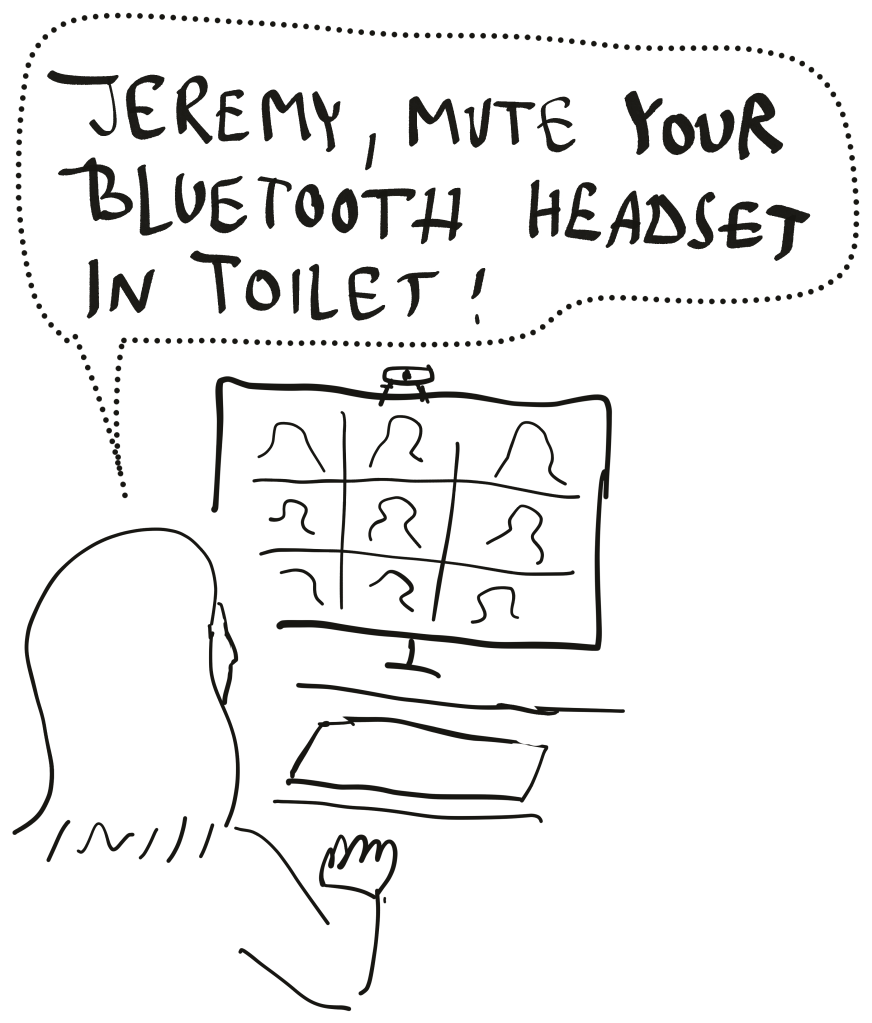 JEREMY, MUTE YOUR
BLUETOOTH HEADSET
IN TOILET!